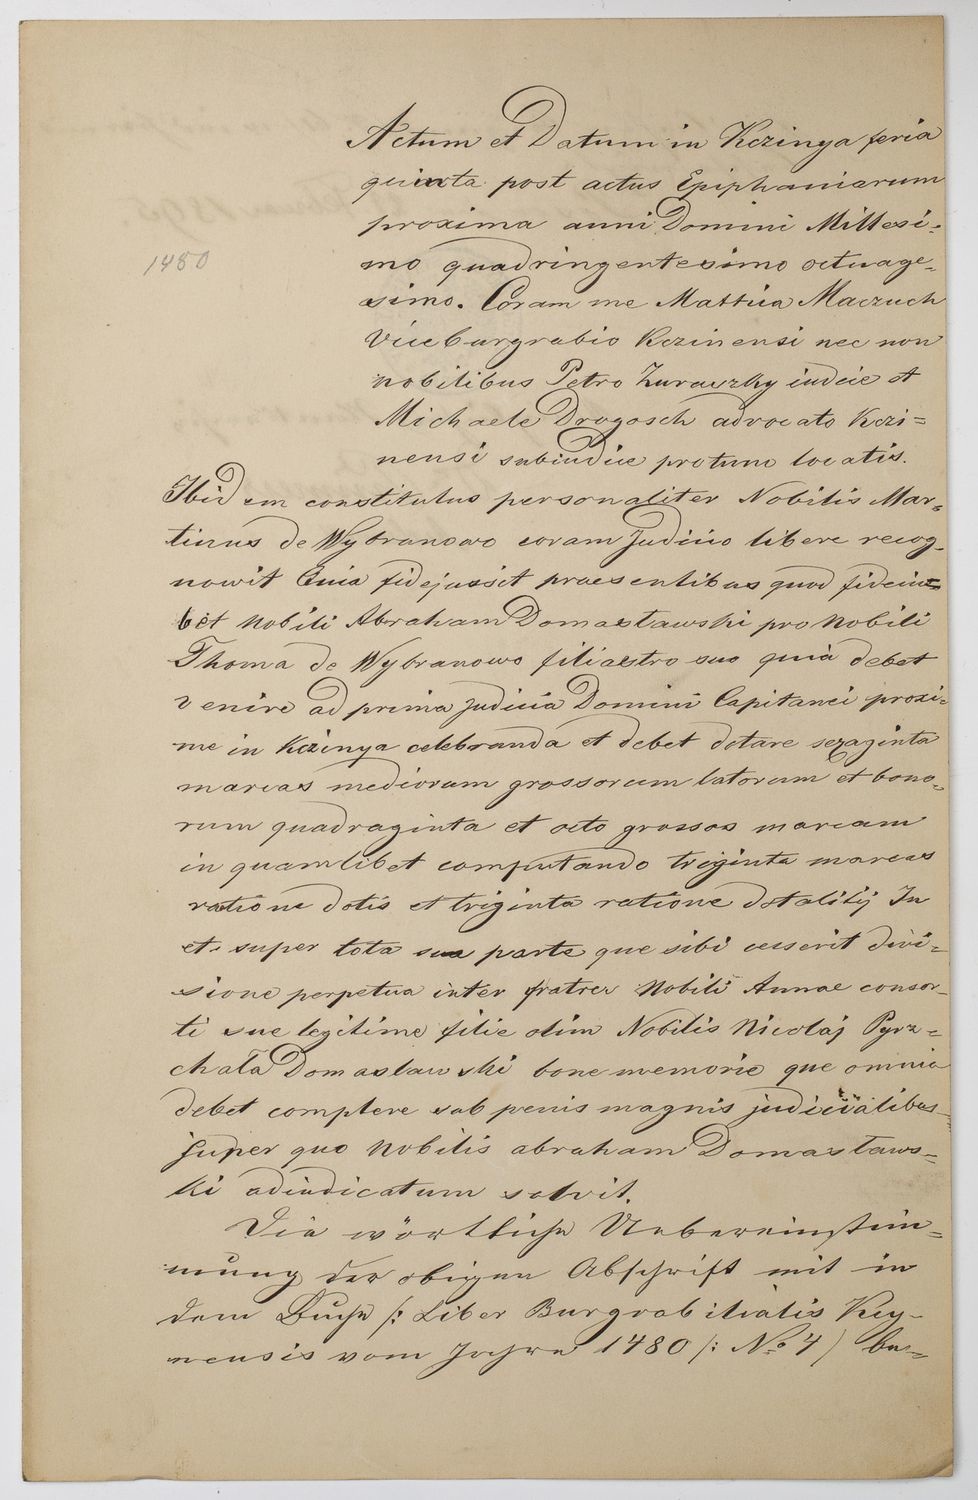 Actum et Datum in Kczinya feria
quinta post actus Epiphaniarum
proxima anni Domini Millesi-
1480
mo quadringentesimo octuage-
simo. Coram me Mattia Maczuch
Viceburgrabio Kczinensi nec non
nobilibus Petro Zurawzky iudice et
Michaele Drogosch advocato Kczi=
nensi subiudice protunc locatis.
Ibidem constitutus personaliter Nobilis Mar-
tinus de Wybranowo coram Judicio libere recog-
nowit Quia fidejussit praesentibus quod fideius=
bet nobili Abraham Domaslawski pro Nobili
Thoma de Wybranowo filiastro suo quia debet
venire ad prima Judicia Domini Capitanei proxi-
me in Kczinya celebranda et debet dotare sexaginta
marcas mediorum grossorum latorum et bono-
rum quadraginta et octo grossos marcam
in quamlibet computando triginta marcas
ratione dotis et triginta ratione dotalitij In
et super tota sua parte que sibi cesserit divi=
sione perpetua inter fratres Nobili Annae consor-
ti sue legitime filie olim Nobilis Nicolaj Pyrz=
chala Domaslawski bone memorie que omnia
debet complere sub penis magnis judicialibus
super quo Nobilis abraham Domaslaws=
ki adiudicatum solvit.
Die wörtliche Uebereinstim=
mung der obigen Abschrift mit in
dem Buche /: Liber Burgrabitialis Key-
nensis vom Jahre 1480 /: No 4 / be=